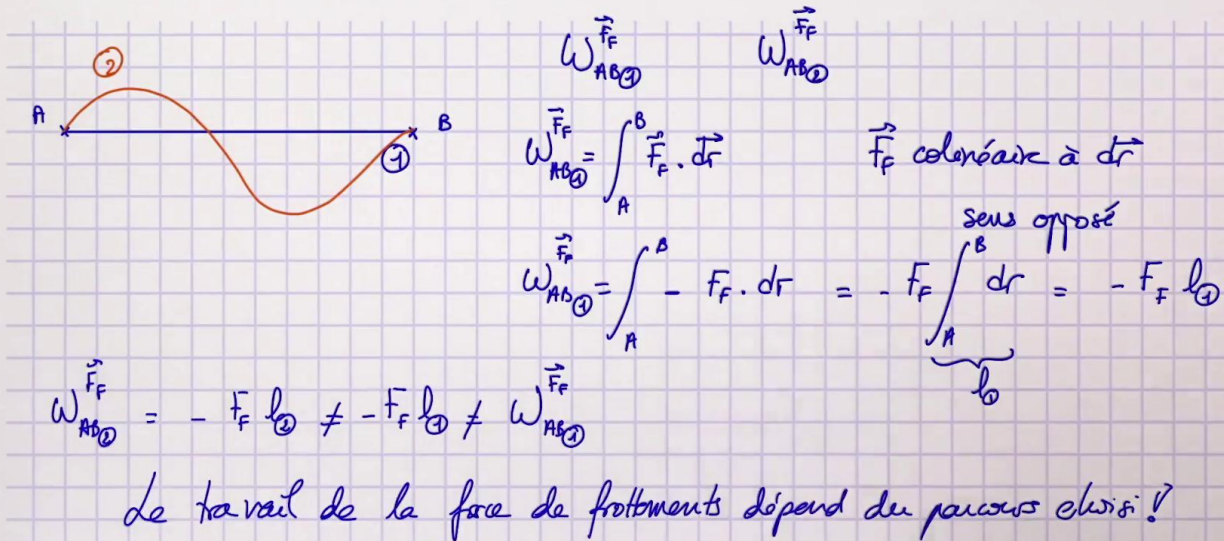 ②
A B
①
W_{AB①}^{\vec{F_F}} W_{AB②}^{\vec{F_F}}
W_{AB①}^{\vec{F_F}} = \int_A^B \vec{F_F} . \vec{dr} \vec{F_F} colinéaire à \vec{dr}
sens opposé
W_{AB①}^{\vec{F_F}} = \int_A^B - F_F . dr = - F_F \int_A^B dr = - F_F l_①
l_①
W_{AB②}^{\vec{F_F}} = - F_F l_② ≠ - F_F l_① ≠ W_{AB①}^{\vec{F_F}}
Le travail de la force de frottements dépend du parcours choisi !